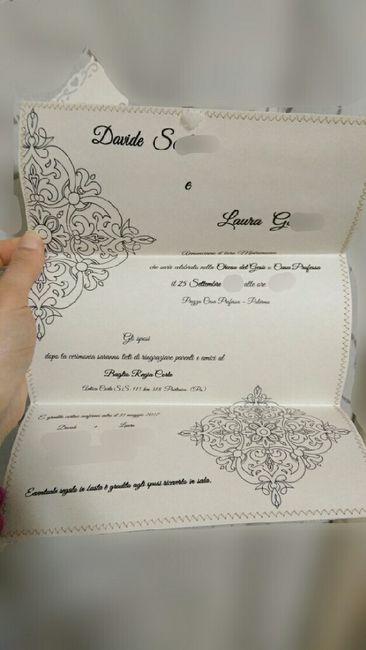 Davide S
e
Laura G
Annunciano il loro Matrimonio
che sarà celebrato nella Chiesa del Gesù o Casa Professa
il 25 Settembre alle ore
Piazza Casa Professa - Palermo
Gli sposi
dopo la cerimonia saranno lieti di ringraziare parenti e amici al
Baglio Regia Corte
Antica Corte S.S. 117 km 318 (Pa)
È gradita conferma entro il 31 maggio 2017
Davide e Laura
Eventuale regalo in busta è gradito agli sposi riceverlo in sala.